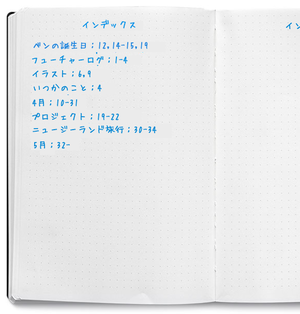 インデックス
ペンの誕生日：12,14-15,19
フューチャーログ：1-4
イラスト：6,9
いつかのこと：4
4月：10-31
プロジェクト：19-22
ニュージーランド旅行：30-34
5月：32-
イン